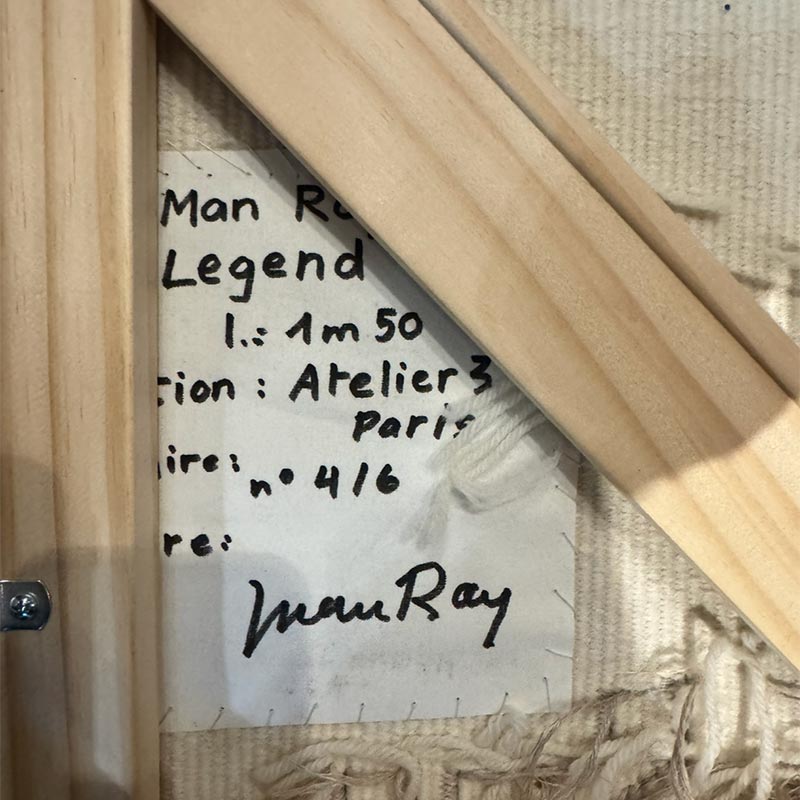 Man Ra
Legend
l.: 1m 50
tion : Atelier 3
Paris
ire:
n° 4/6
re:
Man Ray